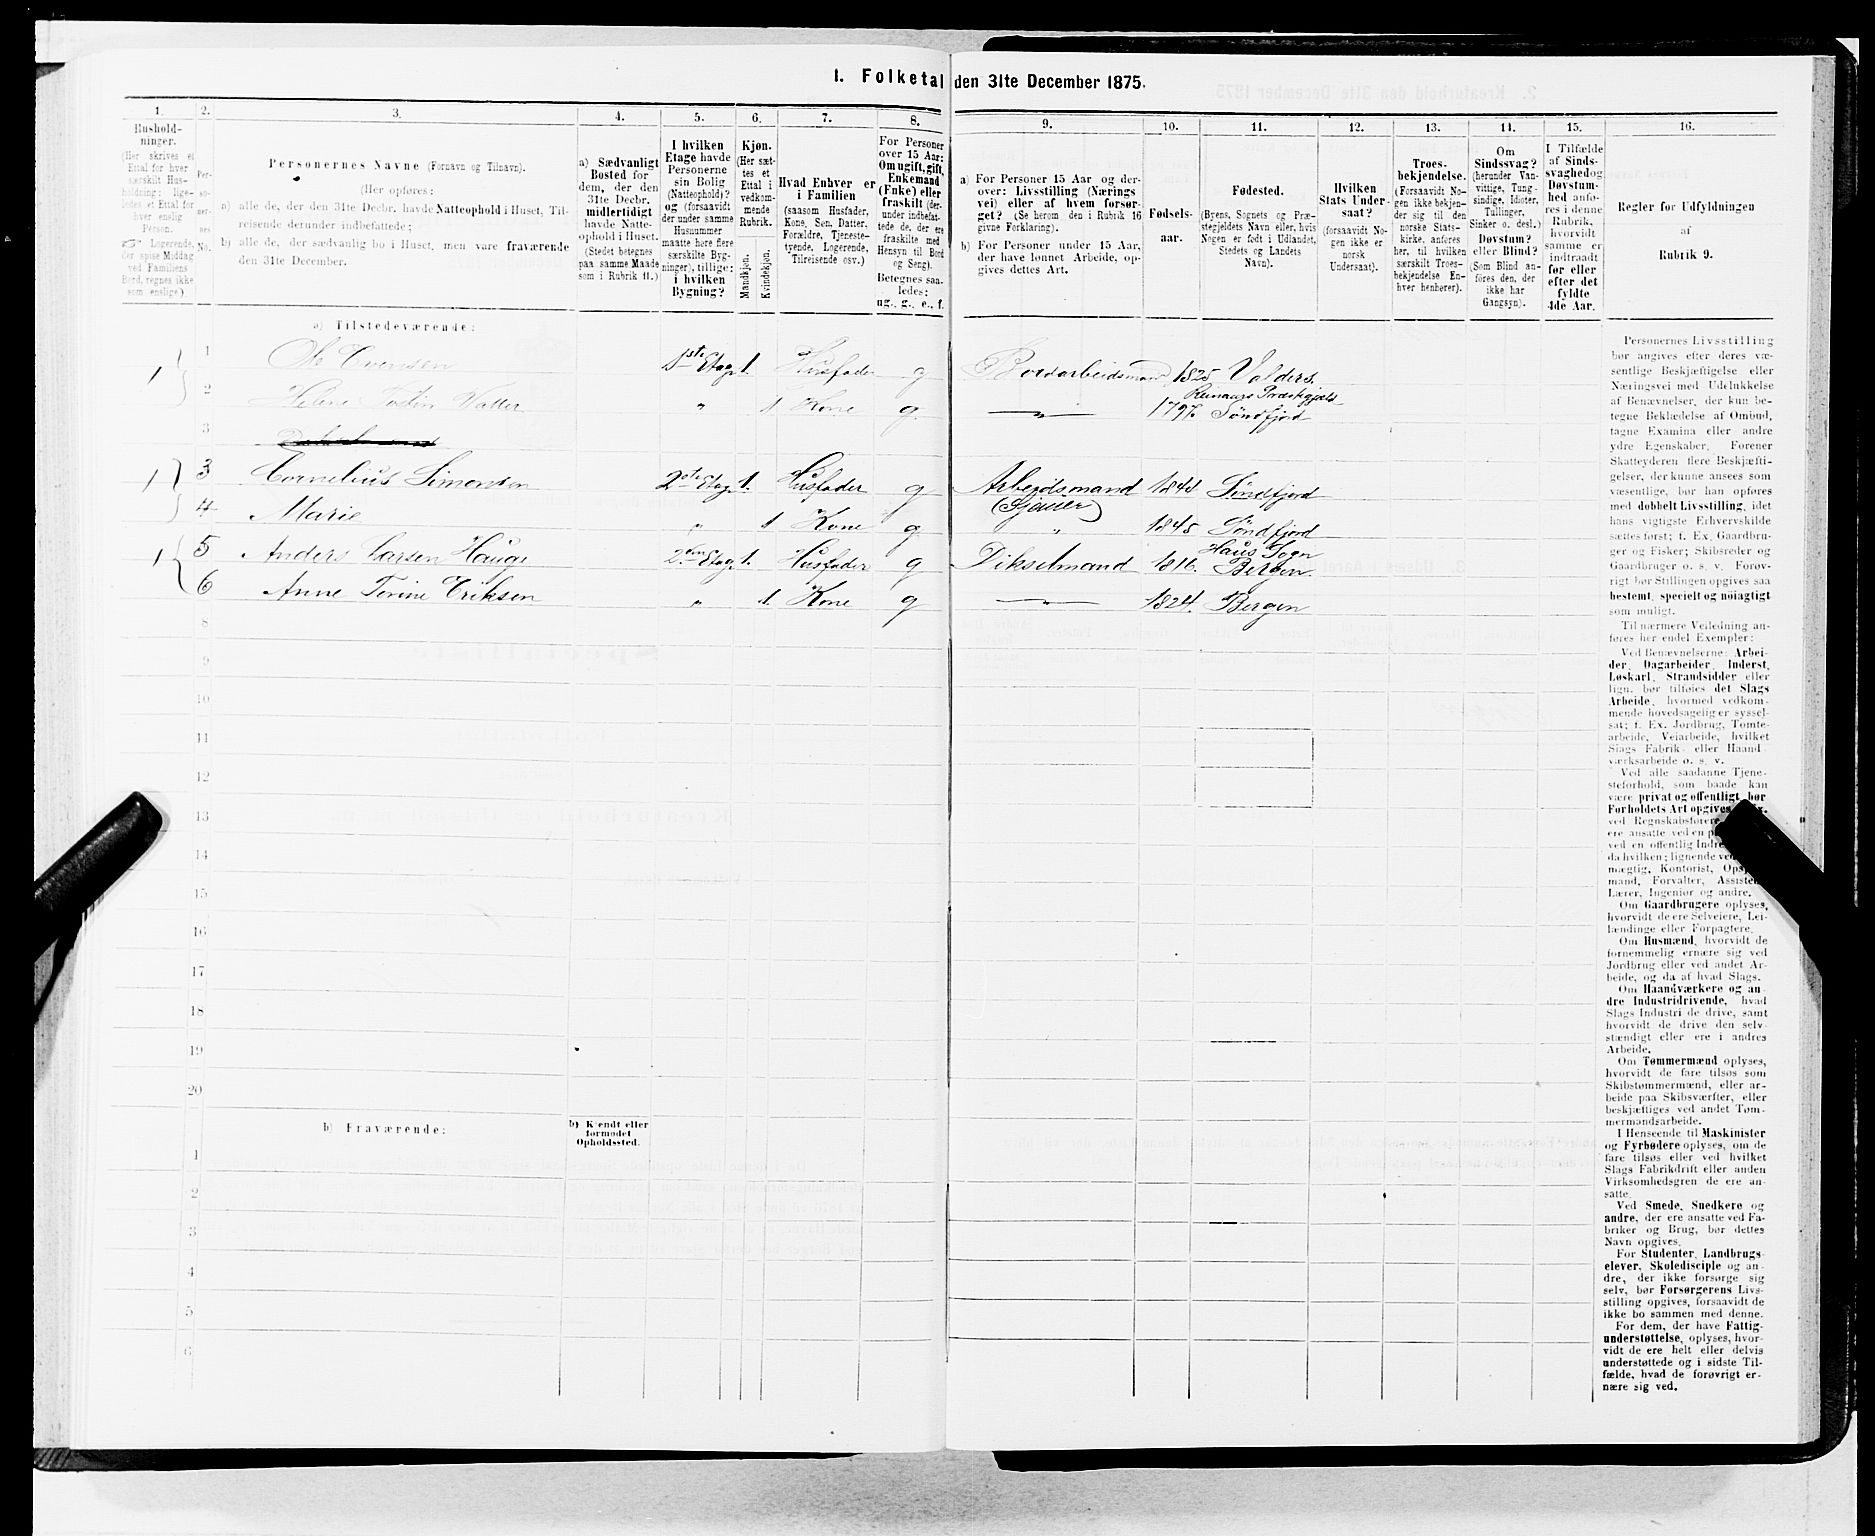 1. Folketal den 31te December 1875.
1.
Hushold-
ninger.
(Her skrives et
Ettal for hver
særskilt Hus-
holdning; lige-
ledes et Ettal for
hver enslig
Person.
Logerende,
der spise Middag
ved Familiens
Bord, regnes ikke
som enslige).
2.
Per-
so-
ner-
nes
No.
3.
Personernes Navne (Fornavn og Tilnavn).
(Her opføres:
a) alle de, der den 31te Decbr. havde Natteophold i Huset, Til-
reisende derunder indbefattede;
b) alle de, der sædvanlig bo i Huset, men vare fraværende
den 31te December.
4.
a) Sædvanligt
Bosted for
dem, der den
31te Decbr.
midlertidigt
havde Natte-
ophold i Huset.
(Stedet betegnes
paa samme Maade
som i Rubrik 11.)
5.
I hvilken
Etage havde
Personerne
sin Bolig
(Natteophold)?
og (forsaavidt
der under samme
Husnummer
maatte høre flere
særskilte Byg-
ninger), tillige:
i hvilken
Bygning?
6.
Kjøn.
(Her sæt-
tes et
Ettal i
vedkom-
mende
Rubrik.
Mandkjøn.
Kvindekjøn.
7.
Hvad Enhver er
i Familien
(saasom Husfader,
Kone, Søn, Datter,
Forældre, Tjeneste-
tyende, Logerende,
Tilreisende osv.)
8.
For Personer
over 15 Aar:
Om ugift, gift,
Enkemand
(Enke) eller
fraskilt (der-
under indbefat-
tede de, der ere
fraskilte med
Hensyn til Bord
og Seng).
Betegnes saa-
ledes:
ug., g., e., f.
9.
a) For Personer 15 Aar og der-
over: Livsstilling (Nærings
vei) eller af hvem forsør-
get? (Se herom den i Rubrik 16
givne Forklaring).
b) For Personer under 15 Aar,
der have lønnet Arbeide, op-
gives dettes Art.
10.
Fødsels-
aar.
11.
Fødested.
(Byens, Sognets og Præ-
stegjeldets Navn eller, hvis
Nogen er født i Udlandet,
Stedets og Landets
Navn).
12.
Hvilken
Stats Under-
saat?
(forsaavidt No-
gen ikke er
norsk
Undersaat).
13.
Troes-
bekjendelse.
(Forsaavidt No-
gen ikke bekjen-
der sig til den
norske Stats-
kirke, anføres
her, til hvilken
særskilt Troes-
bekjendelse En-
hver henhører).
14.
Om
Sindssvag?
(herunder Van-
vittige, Tung-
sindige, Idioter,
Tullinger,
Sinker o. desl.)
Døvstum?
eller Blind?
(Som Blind an-
føres den, der
ikke har
Gangsyn).
15.
I Tilfælde
af Sinds-
svaghed og
Døvstum-
hed anfø-
res i denne
Rubrik,
hvorvidt
samme er
indtraadt
før eller
efter det
fyldte
4de Aar.
16.
Regler for Udfyldningen
af
Rubrik 9.
a) Tilstedeværende:
1 1 Ole Evensen 1ste Etag. 1. Husfader g Bordarbeidsmand 1825 Valders.
2 Helene " 1 Kone g " 1797. Søndfjord
3
1 3 Cornelius Simonsen 2 Etag. 1. Husfader g Arbeidsmand 1844 Søndfjord
4 Marie " 1 Kone g " 1845 Søndfjord
1 5 Anders Larsen Hauge 2den Etag. 1. Husfader g Dikselmand 1816. Haus Sogn Bergen.
6 Anne Terine Eriksen " 1. Kone g " 1824. Bergen
8
9
10
11
12
13
14
15
16
17
18
19
20
b) Fraværende:
b) Kjendt eller
formodet
Opholdssted.
1
2
3
4
5
6
Personernes Livsstilling
bør angives efter deres væ-
sentlige Beskjæftigelse eller
Næringsvei med Udelukkelse
af Benævnelser, der kun be-
tegne Beklædelse af Ombud,
tagne Examina eller andre
ydre Egenskaber. Forener
Skatteyderen flere Beskjæfti-
gelser, der kunne ansees som
væsentlige, bør han opføres
med dobbelt Livsstilling, idet
hans vigtigste Erhvervskilde
sættes først; f. Ex. Gaardbru-
ger og Fisker; Skibsreder og
Gaardbruger o. s. v. Forøv-
rigt bør Stillingen opgives saa
bestemt, specielt og nöiagtigt
som muligt.
Til nærmere Veiledning an-
føres her endel Exempler:
Ved Benævnelserne: Arbei-
der, Dagarbeider, Inderst,
Løskarl, Strandsidder eller
lign. bør tilføies det Slags
Arbeide, hvormed vedkom-
mende hovedsagelig er syssel-
sat; f. Ex. Jordbrug, Tomte-
arbeide, Veiarbeide, hvilket
Slags Fabrik- eller Haand-
værksarbeide o. s. v.
Ved alle saadanne Tjene-
steforhold, som baade kan
være privat og offentligt, bør
Forholdets Art opgives,
ved Regnskabsførere,
ere ansatte ved en
ved en offentlig
da hvilken; lignende
mægtig, Kontorist,
mand, Forvalter,
Lærer, Ingeniør og andre.
Om Gaardbrugere oplyses,
hvorvidt de ere Selveiere, Lei-
lændinge eller Forpagtere.
Om Husmænd, hvorvidt de
fornemmelig ernære sig ved
Jordbrug eller ved andet Ar-
beide, og da af hvad Slags.
Om Haandværkere og an-
dre Industridrivende, hvad
Slags Industri de drive, samt
hvorvidt de drive den selv-
stændigt eller ere i andres
Arbeide.
Om Tømmermænd oplyses,
hvorvidt de fare tilsøs som
Skibstømmermænd, eller ar-
beide paa Skibsværfter, eller
beskjæftiges ved andet Tøm-
mermandsarbeide.
I Henseende til Maskinister
og Fyrbødere oplyses, om de
fare tilsøs eller ved hvilket
Slags Fabrikdrift eller anden
Virksomhedsgren de ere an-
satte.
Ved Smede, Snedkere og
andre, der ere ansatte ved Fa-
briker og Brug, bør dettes
Navn opgives.
For Studenter, Landbrugs-
elever, Skoledisciple og an-
dre, der ikke forsørge sig
selv, bør Forsørgerens Livs-
stilling opgives, forsaavidt de
ikke bo sammen med denne.
For dem, der have Fattig-
understøttelse, oplyses, hvor-
vidt de ere helt eller delvis
understøttede og i sidste Til-
fælde, hvad de forøvrigt er-
nære sig ved.